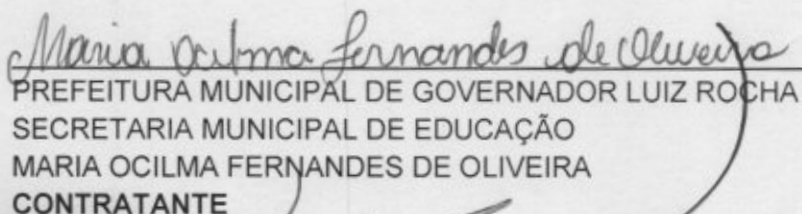 Maria Ocilma Fernandes de Oliveira
PREFEITURA MUNICIPAL DE GOVERNADOR LUIZ ROCHA
SECRETARIA MUNICIPAL DE EDUCAÇÃO
MARIA OCILMA FERNANDES DE OLIVEIRA
CONTRATANTE